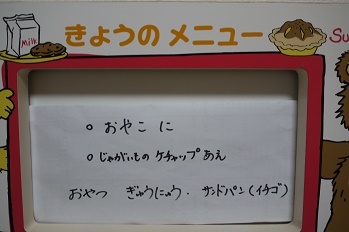 Milk
きょうの メニュー
Su
○ おやこ に
○ じゃがいもの ケチャップ あえ
おやつ ぎゅうにゅう・サンドパン(イチゴ)